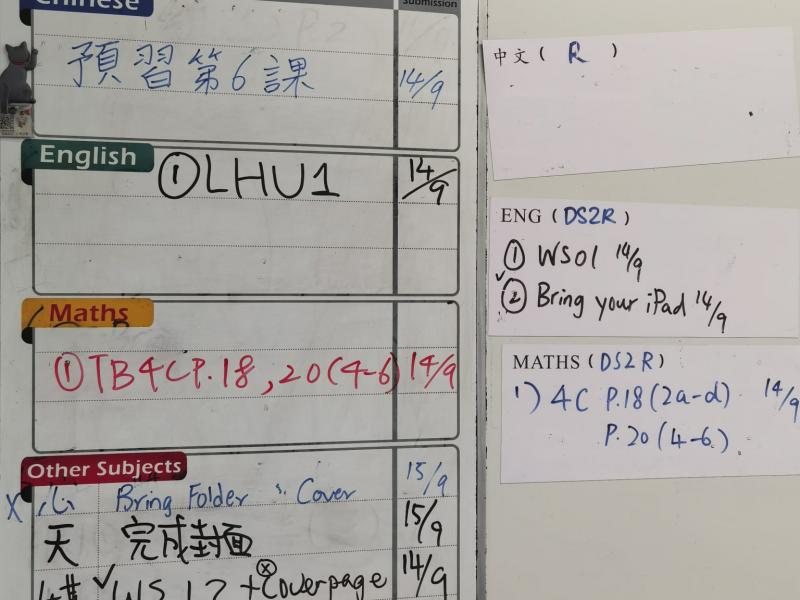 Chinese
Submission
預習第6課 14/9
English
①LHU1 14/9
Maths
①TB4CP.18,20(4-6) 14/9
Other Subjects
X 心 Bring Folder Cover 15/9
天 完成封面 15/9
✓WS 1.2 + Coverpage 14/9
中文( R )
ENG (DS2R)
① WS01 14/9
✓② Bring your iPad 14/9
MATHS (DS2R)
1) 4C P.18(2a-d) 14/9
P.20(4-6)